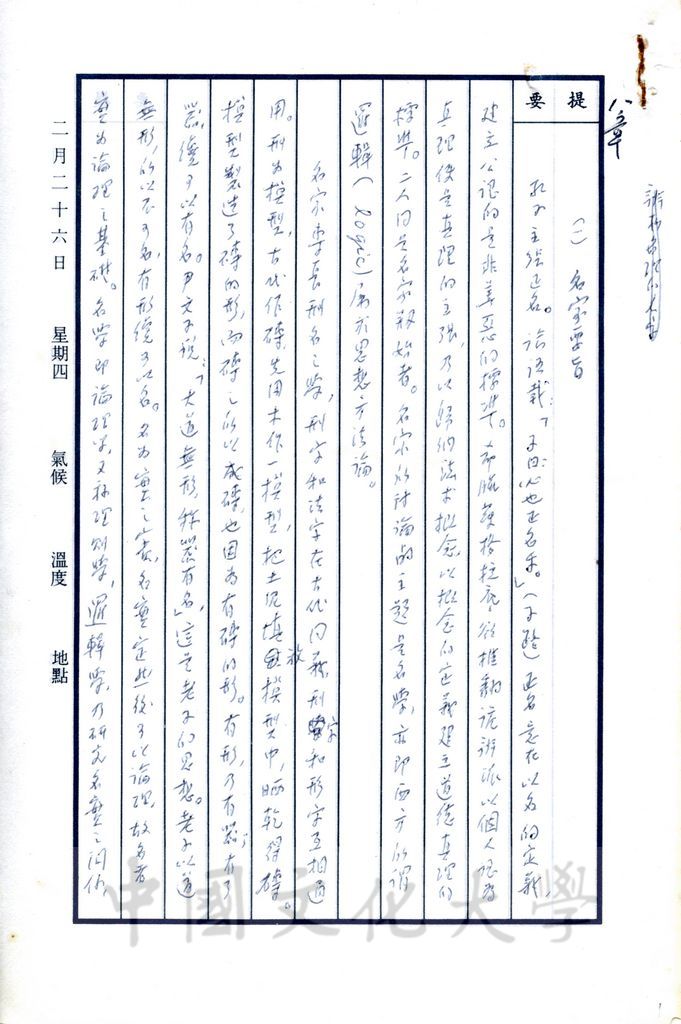 八三年
提要
(一) 名家要旨
孔子主張正名。論語載:「子曰:必也正名乎。」(子路)正名意在以名的定義,
建立公認的是非善惡的標準。希臘蘇格拉底欲推翻詭辯派以個人認為
真理便是真理的主張,乃以歸納法求概念,以概念的定義建立道德真理的
標準。二人同是名家創始者。名家所討論的主題是名學,亦即西方所謂
邏輯(Logic)屬於思想方法論。
名家專長刑名之學,刑字和法字在古代同義,刑字和形字互相通
用。刑為模型,古代作磚,先用木作一模型,把土泥填放模型中,晒乾得磚。
模型製造了磚的形,而磚之所以成磚,也因為有磚的形。有形,乃有器;有了
器,纔可以有名。尹文子說:「大道無形,稱器有名」,這是老子的思想。老子以道
無形,所以不可名,有形纔可以名。名為實之賓,名實定然後可以論理,故名者
實為論理之基礎。名學即論理學,又稱理則學,邏輯學,乃研究名實之關係
二月二十六日 星期四 氣候 溫度 地點
中國文化大學